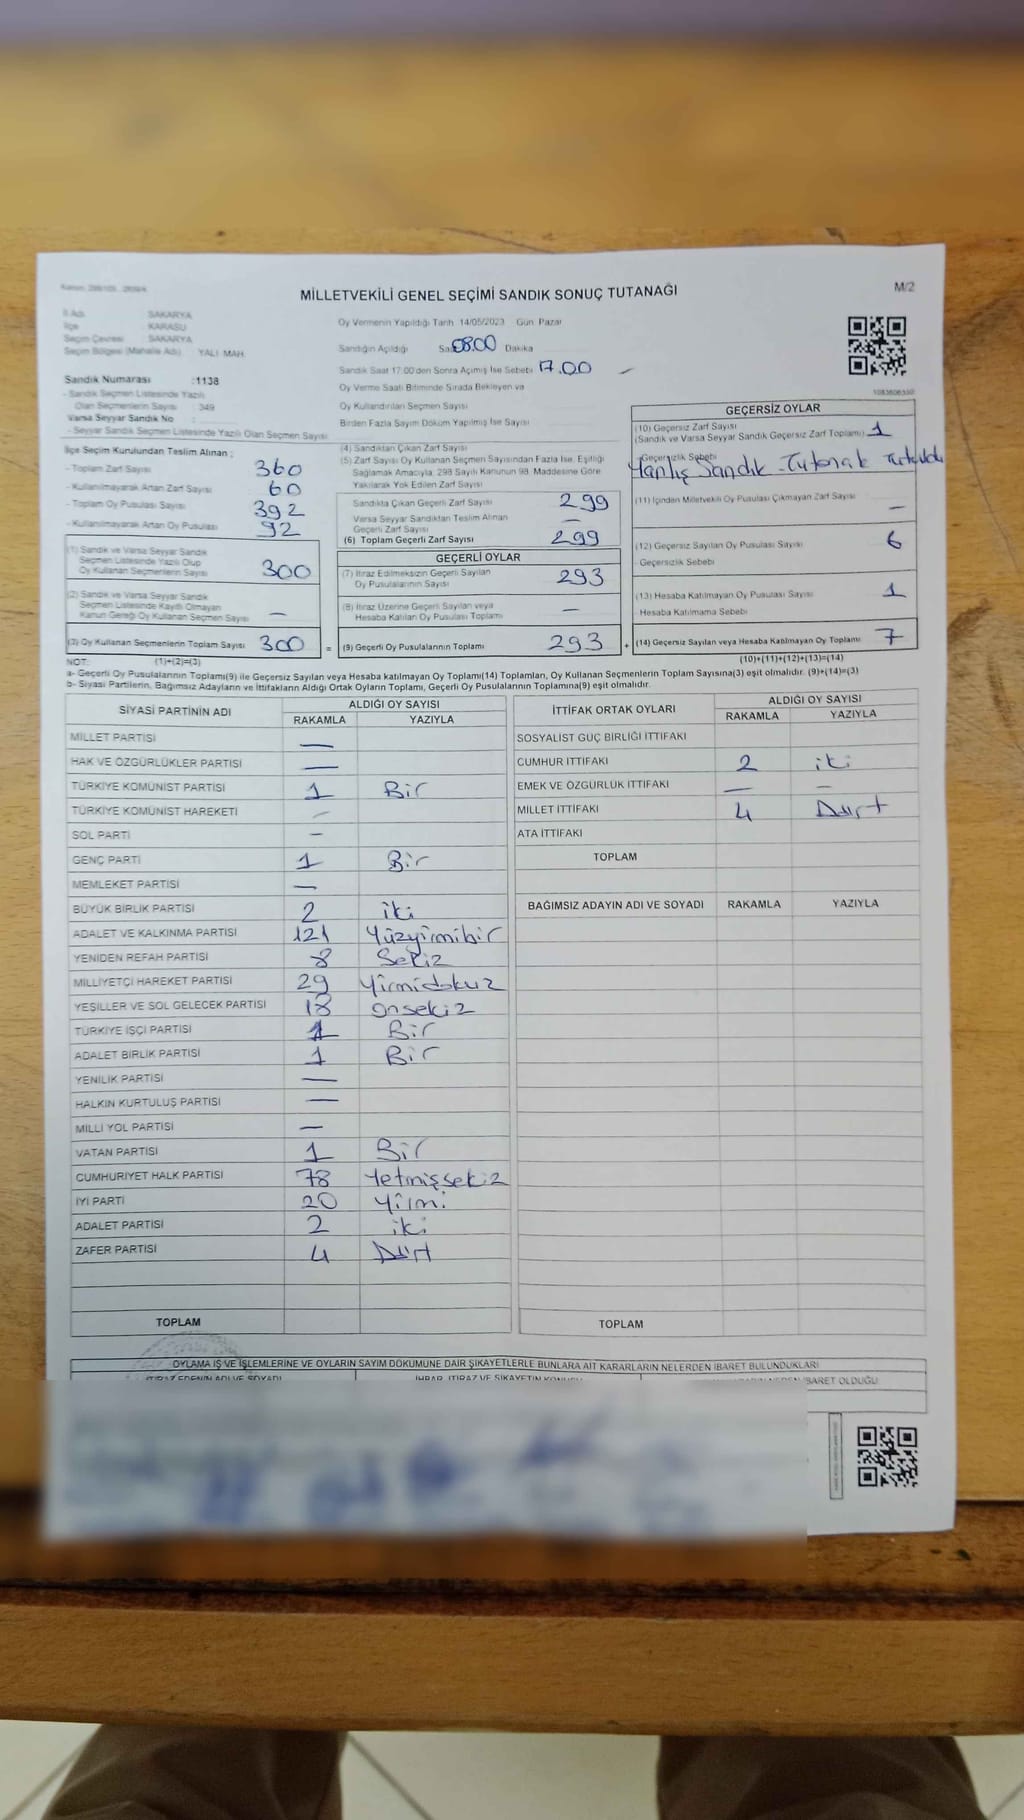 MİLLETVEKİLİ GENEL SEÇİMİ SANDIK SONUÇ TUTANAĞI
M/2
İl Adı : SAKARYA
İlçe : KARASU
Seçim Çevresi : SAKARYA
Seçim Bölgesi (Mahalle Adı) : YALI MAH.
Sandık Numarası :1138
- Sandık Seçmen Listesinde Yazılı
Olan Seçmenlerin Sayısı : 349
Varsa Seyyar Sandık No :
- Seyyar Sandık Seçmen Listesinde Yazılı Olan Seçmen Sayısı
Oy Vermenin Yapıldığı Tarih 14/05/2023 Gün Pazar
Sandığın Açıldığı Sa 08.00 Dakika
Sandık Saat 17:00'den Sonra Açılmış İse Sebebi 17.00
Oy Verme Saati Bitiminde Sırada Bekleyen ve
Oy Kullandırılan Seçmen Sayısı
Birden Fazla Sayım Döküm Yapılmış İse Sayısı
İlçe Seçim Kurulundan Teslim Alınan ;
- Toplam Zarf Sayısı 360
- Kullanılmayarak Artan Zarf Sayısı 60
- Toplam Oy Pusulası Sayısı 392
- Kullanılmayarak Artan Oy Pusulası 92
(1) Sandık ve Varsa Seyyar Sandık
Seçmen Listesinde Yazılı Olup
Oy Kullanan Seçmenlerin Sayısı 300
(2) Sandık ve Varsa Seyyar Sandık
Seçmen Listesinde Kayıtlı Olmayan
Kanun Gereği Oy Kullanan Seçmen Sayısı —
(3) Oy Kullanan Seçmenlerin Toplam Sayısı 300 =
(4) Sandıktan Çıkan Zarf Sayısı
(5) Zarf Sayısı Oy Kullanan Seçmen Sayısından Fazla İse, Eşitliği
Sağlamak Amacıyla, 298 Sayılı Kanunun 98. Maddesine Göre
Yakılarak Yok Edilen Zarf Sayısı
Sandıkta Çıkan Geçerli Zarf Sayısı 299
Varsa Seyyar Sandıktan Teslim Alınan
Geçerli Zarf Sayısı —
(6) Toplam Geçerli Zarf Sayısı 299
GEÇERLİ OYLAR
(7) İtiraz Edilmeksizin Geçerli Sayılan
Oy Pusulalarının Sayısı 293
(8) İtiraz Üzerine Geçerli Sayılan veya
Hesaba Katılan Oy Pusulası Toplamı —
(9) Geçerli Oy Pusulalarının Toplamı 293 +
GEÇERSİZ OYLAR
(10) Geçersiz Zarf Sayısı
(Sandık ve Varsa Seyyar Sandık Geçersiz Zarf Toplamı) 1
Geçersizlik Sebebi
Yanlış Sandık - Tutanak Tutuldu
(11) İçinden Milletvekili Oy Pusulası Çıkmayan Zarf Sayısı —
(12) Geçersiz Sayılan Oy Pusulası Sayısı 6
Geçersizlik Sebebi
(13) Hesaba Katılmayan Oy Pusulası Sayısı 1
Hesaba Katılmama Sebebi
(14) Geçersiz Sayılan veya Hesaba Katılmayan Oy Toplamı 7
NOT: (1)+(2)=(3)
(10)+(11)+(12)+(13)=(14)
a- Geçerli Oy Pusulalarının Toplamı(9) ile Geçersiz Sayılan veya Hesaba katılmayan Oy Toplamı(14) Toplamları, Oy Kullanan Seçmenlerin Toplam Sayısına(3) eşit olmalıdır. (9)+(14)=(3)
b- Siyasi Partilerin, Bağımsız Adayların ve İttifakların Aldığı Ortak Oyların Toplamı, Geçerli Oy Pusulalarının Toplamına(9) eşit olmalıdır.
SİYASİ PARTİNİN ADI
ALDIĞI OY SAYISI
RAKAMLA YAZIYLA
MİLLET PARTİSİ —
HAK VE ÖZGÜRLÜKLER PARTİSİ —
TÜRKİYE KOMÜNİST PARTİSİ 1 Bir
TÜRKİYE KOMÜNİST HAREKETİ —
SOL PARTİ —
GENÇ PARTİ 1 Bir
MEMLEKET PARTİSİ —
BÜYÜK BİRLİK PARTİSİ 2 iki
ADALET VE KALKINMA PARTİSİ 121 Yüzyirmibir
YENİDEN REFAH PARTİSİ 8 Sekiz
MİLLİYETÇİ HAREKET PARTİSİ 29 Yirmidokuz
YEŞİLLER VE SOL GELECEK PARTİSİ 18 onsekiz
TÜRKİYE İŞÇİ PARTİSİ 1 Bir
ADALET BİRLİK PARTİSİ 1 Bir
YENİLİK PARTİSİ —
HALKIN KURTULUŞ PARTİSİ —
MİLLİ YOL PARTİSİ —
VATAN PARTİSİ 1 Bir
CUMHURİYET HALK PARTİSİ 78 Yetmişsekiz
İYİ PARTİ 20 Yirmi
ADALET PARTİSİ 2 iki
ZAFER PARTİSİ 4 Dört
TOPLAM
İTTİFAK ORTAK OYLARI
ALDIĞI OY SAYISI
RAKAMLA YAZIYLA
SOSYALİST GÜÇ BİRLİĞİ İTTİFAKI
CUMHUR İTTİFAKI 2 iki
EMEK VE ÖZGÜRLÜK İTTİFAKI — —
MİLLET İTTİFAKI 4 Dört
ATA İTTİFAKI
TOPLAM
BAĞIMSIZ ADAYIN ADI VE SOYADI RAKAMLA YAZIYLA
TOPLAM
OYLAMA İŞ VE İŞLEMLERİNE VE OYLARIN SAYIM DÖKÜMÜNE DAİR ŞİKAYETLERLE BUNLARA AİT KARARLARIN NELERDEN İBARET BULUNDUKLARI
İTİRAZ EDENİN ADI VE SOYADI
İHBAR, İTİRAZ VE ŞİKAYETİN KONUSU
İBARET OLDUĞU